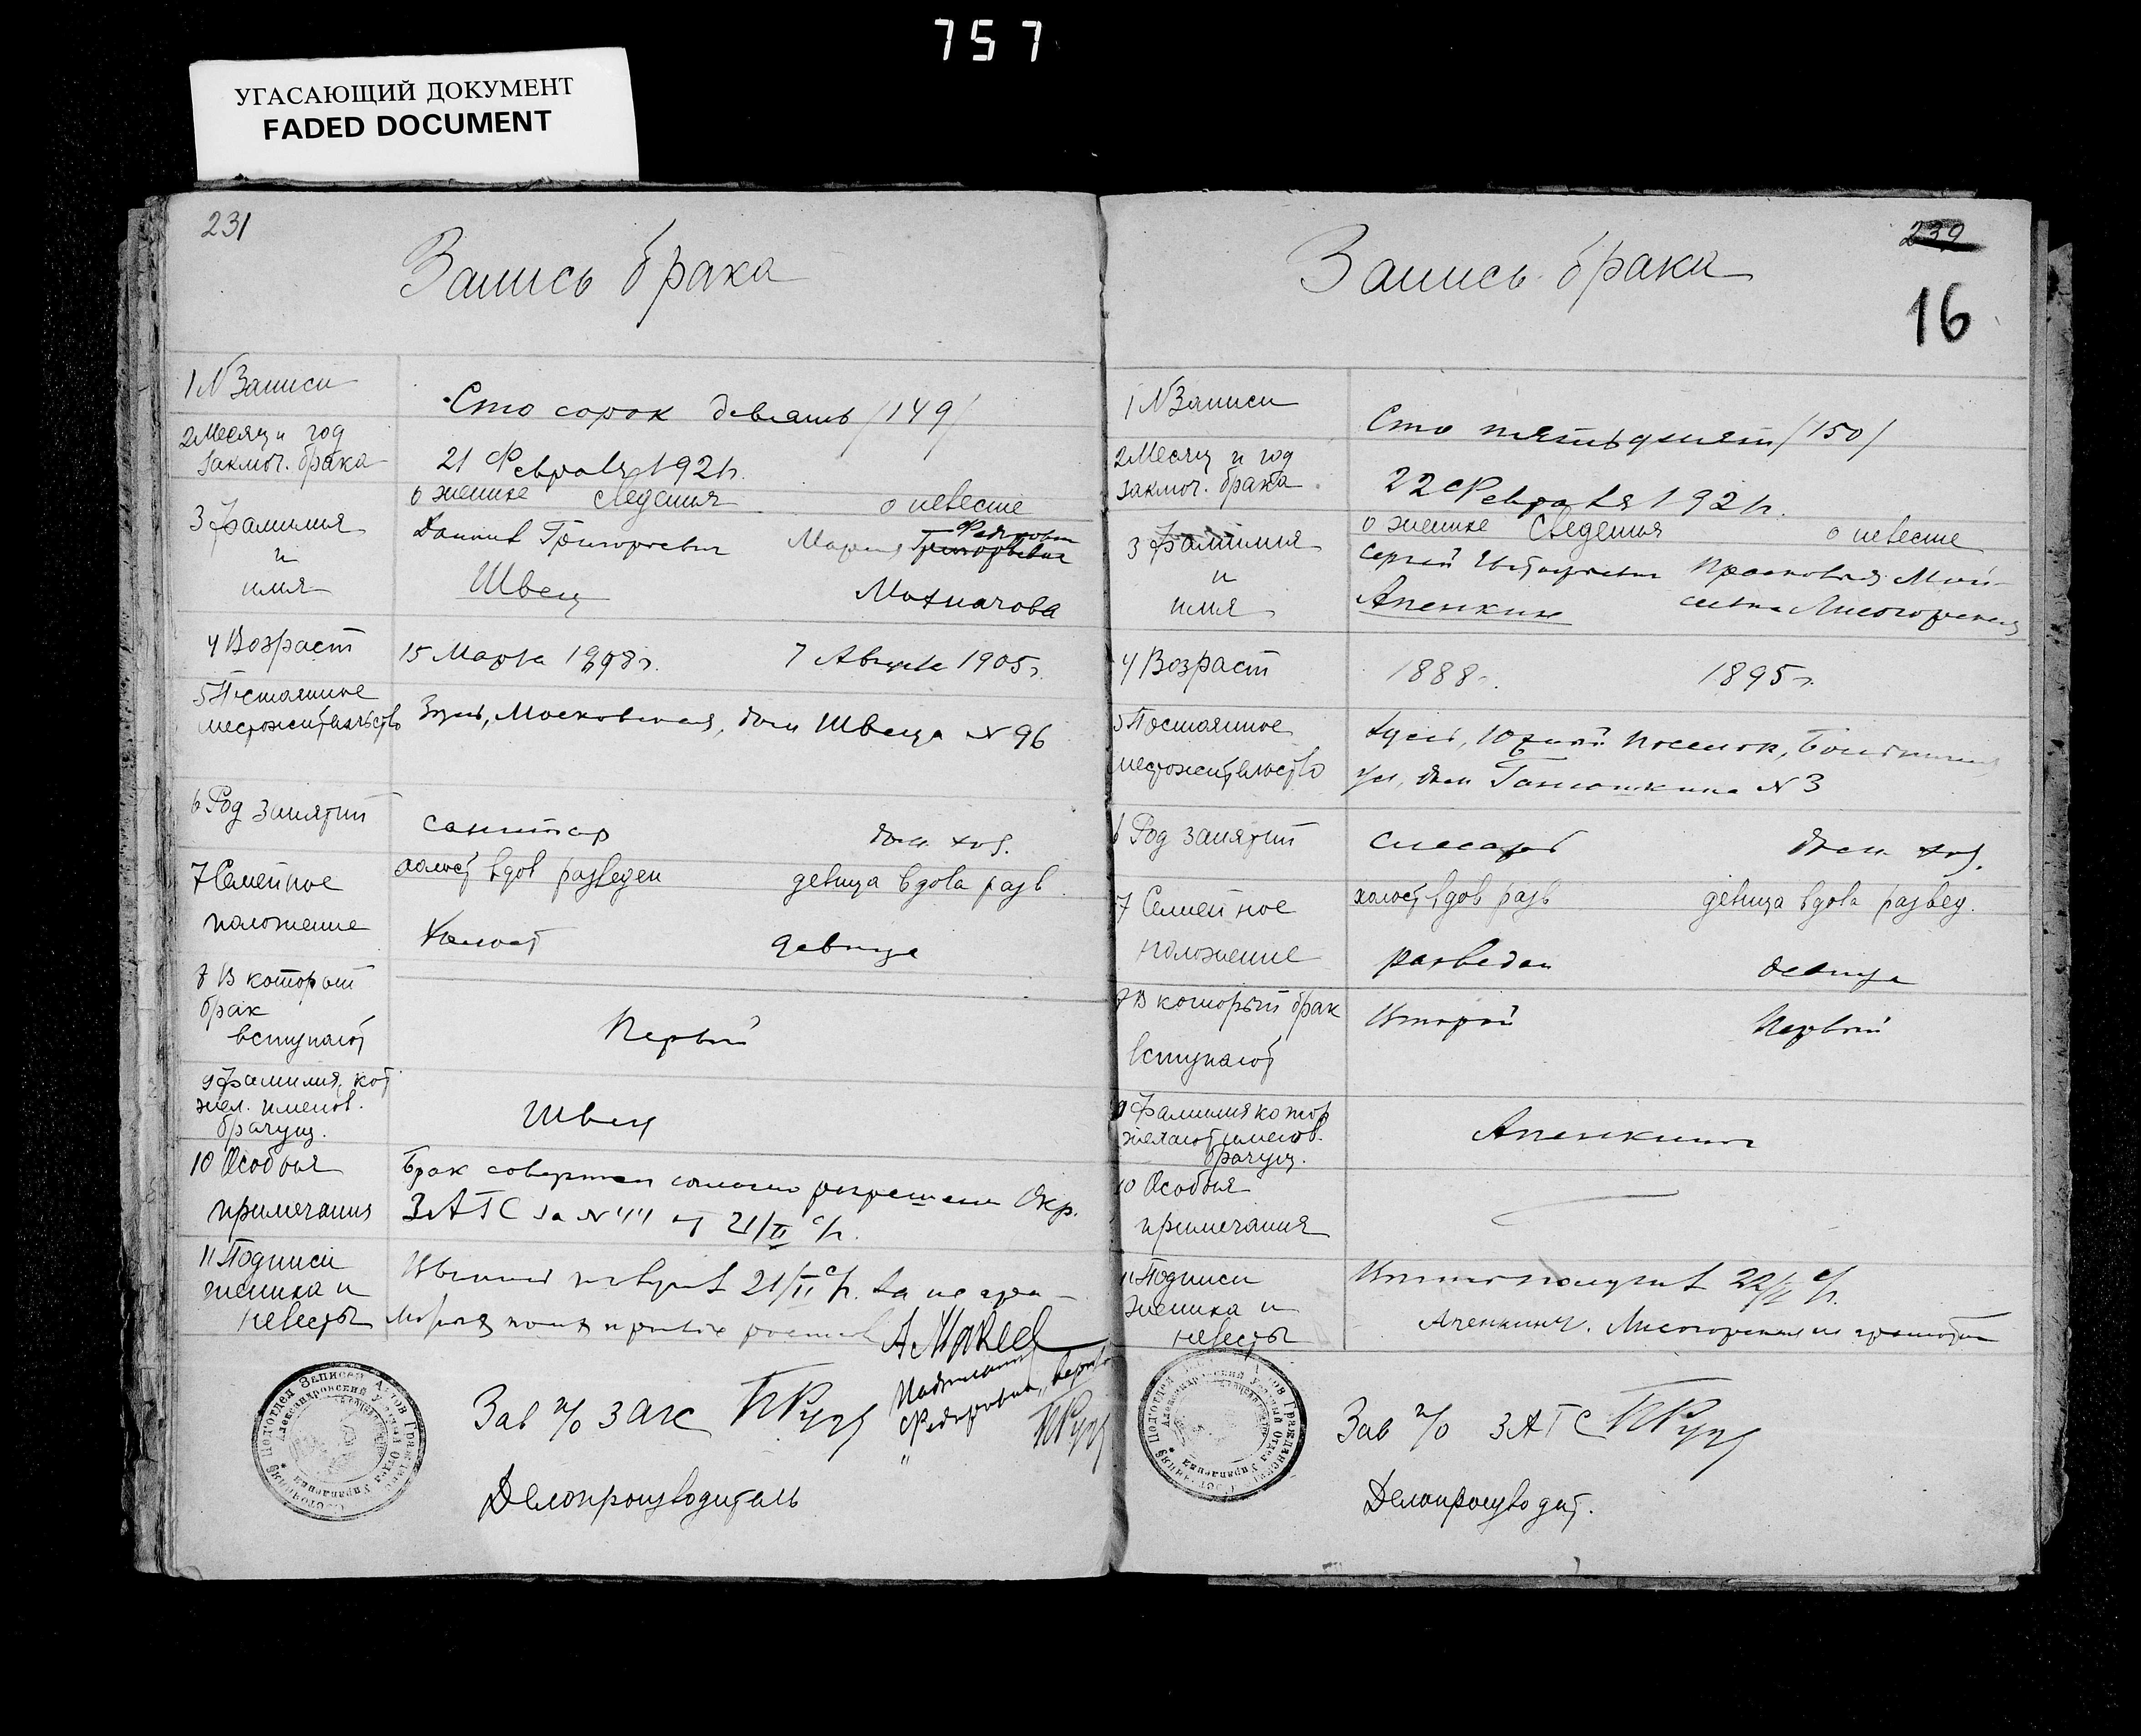 757
УГАСАЮЩИЙ ДОКУМЕНТ
FADED DOCUMENT
231
Запись брака
1 N Записи
Сто сорок девять /149/
2 Месяц и год
заключ. брака
21 Февраля 1921 г.
о женихе сведения о невесте
3 Фамилия
и
имя
Даниил Григорьевич
Швец
Мария Григорьевна
Махначова
4 Возраст
15 Марта 1898 г. 7 Августа 1905 г.
5 Постоянное
местожительство
Московская, дом Швеца N 96
6 Род занятий
санитар дом. хоз.
7 Семейное
положение
холост вдов разведен девица вдова разв.
Холост девица
8 В который
брак
вступают
Первый
9 Фамилия, кот
жел. именов.
брачущ.
Швец
10 Особыя
примечания
Брак совершен согласно разрешен Окр.
ЗАГС за N от 21/II с/г.
11 Подписи
жениха и
невесты
21/II с/г. за не
А Макеев
Зав п/о загс
Делопроизводитель
Подотдел Записей Актов Гражданского Состояния
Александровский Уездный Отдел Управления
239
16
Запись брака
1 N Записи
Сто пятьдесят /150/
2 Месяц и год
заключ. брака
22 Февраля 1921 г.
о женихе Сведения о невесте
3 Фамилия
и
имя
Сергей
Апенкин
Прасковья Мои-
сеевна Лисогорская
4 Возраст
1888 г. 1895 г.
5 Постоянное
местожительство
Южный поселок,
ул, дом N 3
6 Род занятий
слесарь дом. хоз.
7 Семейное
положение
холост вдов разв девица вдова развед.
разведен девица
8 В который брак
вступают
Второй Первый
9 Фамилия котор
желают именов.
брачущ.
Апенкины
10 Особыя
примечания
11 Подписи
жениха и
невесты
получил 22/II с/г.
Апенкины. Лисогорская не грамотна
Зав п/о ЗАГС
Делопроизводит.
Подотдел Записей Актов Гражданского Состояния
Александровский Уездный Отдел Управления